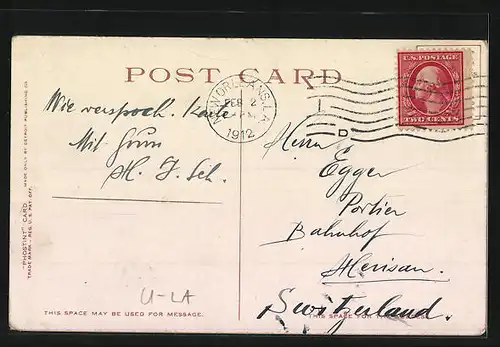 POST CARD
U.S. POSTAGE
TWO CENTS
NEW ORLEANS, LA.
FEB 2
1912
D
Wie versproch. Karte
Mit Gruss
H. J. Sch.
Herrn
Egger
Portier
Bahnhof
Herisau.
Switzerland.
"PHOSTINT" CARD
MADE ONLY BY DETROIT PUBLISHING CO.
TRADE MARK - REG. U.S. PAT. OFF.
U-LA
THIS SPACE MAY BE USED FOR MESSAGE.
THIS SPACE FOR